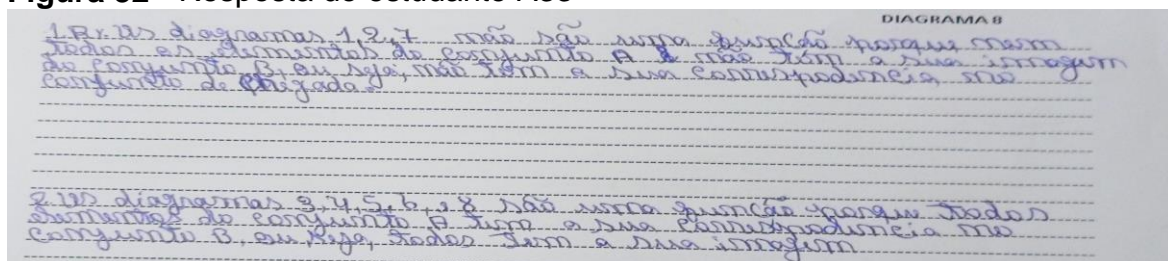 DIAGRAMA 8
1 R: Os diagramas 1,2,7 não são uma função porque nem
todos os elementos do conjunto A não têm a sua imagem
do conjunto B, ou seja, não tem a sua correspodencia no
conjunto de chegada.
2 Os diagramas 3,4,5,6, e 8 são uma função porque todos
elementos do conjunto A tem a sua correspodencia no
conjunto B, ou seja, todos tem a sua imagem